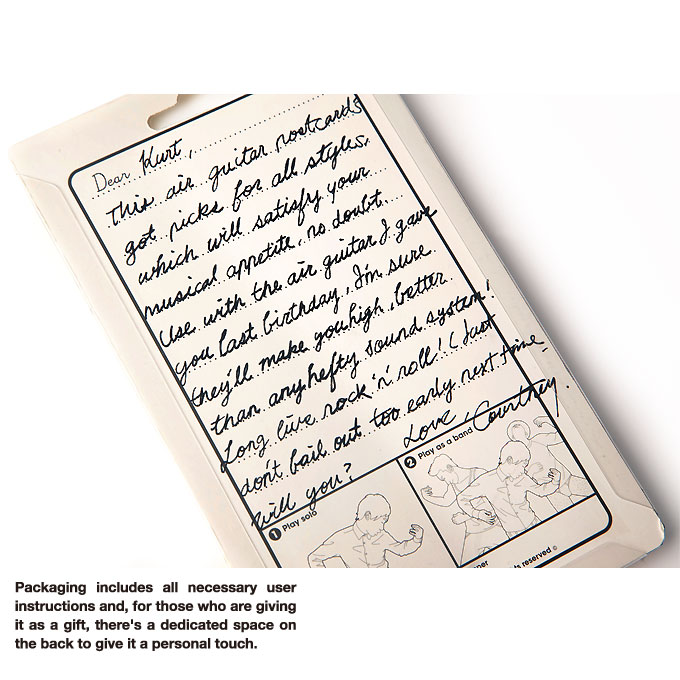 Dear Kurt,
This air guitar postcards
got picks for all styles,
which will satisfy your
musical appetite, no doubt.
Use with the air guitar I gave
you last birthday, I'm sure
they'll make you high, better
than any hefty sound system!
Long live rock 'n' roll! (Just
don't bail out too early next time
will you?
Love, Courtney.
1 Play solo
2 Play as a band
ts reserved ©
Packaging includes all necessary user
instructions and, for those who are giving
it as a gift, there's a dedicated space on
the back to give it a personal touch.